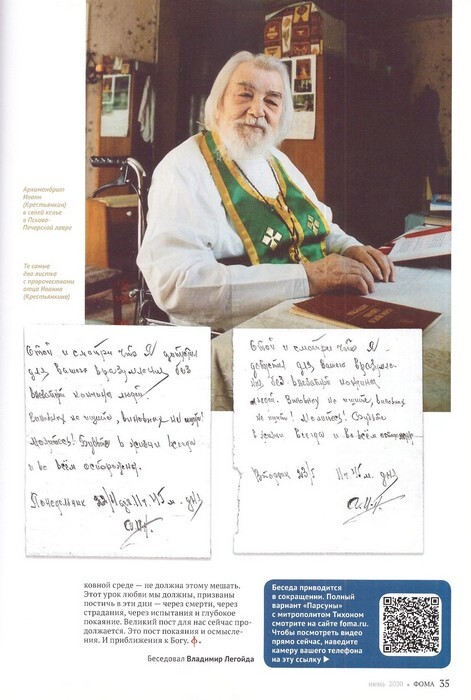 Архимандрит
Иоанн
(Крестьянкин)
в своей келье
в Псково-
Печерской лавре
Те самые
два листка
с пророчествами
отца Иоанна
(Крестьянкина)
Стой и смотри что Я допустил
для вашего вразумления без
кончину людей.
Виновных не ищите, виновных не ищите!
Молитесь! Будьте в жизни всегда
и во всём осторожны.
Понедельник 11 ч. 45 м. дня
Стой и смотри что Я
допустил для вашего вразумле-
ния без кончины
людей. Виновных не ищите, виновных
не ищите! Молитесь! Будьте
в жизни всегда и во всём осторожны.
Вторник 11 ч. 45 м. дня
ковной среде — не должна этому мешать.
Этот урок любви мы должны, призваны
постичь в эти дни — через смерти, через
страдания, через испытания и глубокое
покаяние. Великий пост для нас сейчас про-
должается. Это пост покаяния и осмысле-
ния. И приближения к Богу. ф.
Беседовал Владимир Легойда
Беседа приводится
в сокращении. Полный
вариант «Парсуны»
с митрополитом Тихоном
смотрите на сайте foma.ru.
Чтобы посмотреть видео
прямо сейчас, наведите
камеру вашего телефона
на эту ссылку ►
июнь 2020 • ФОМА 35